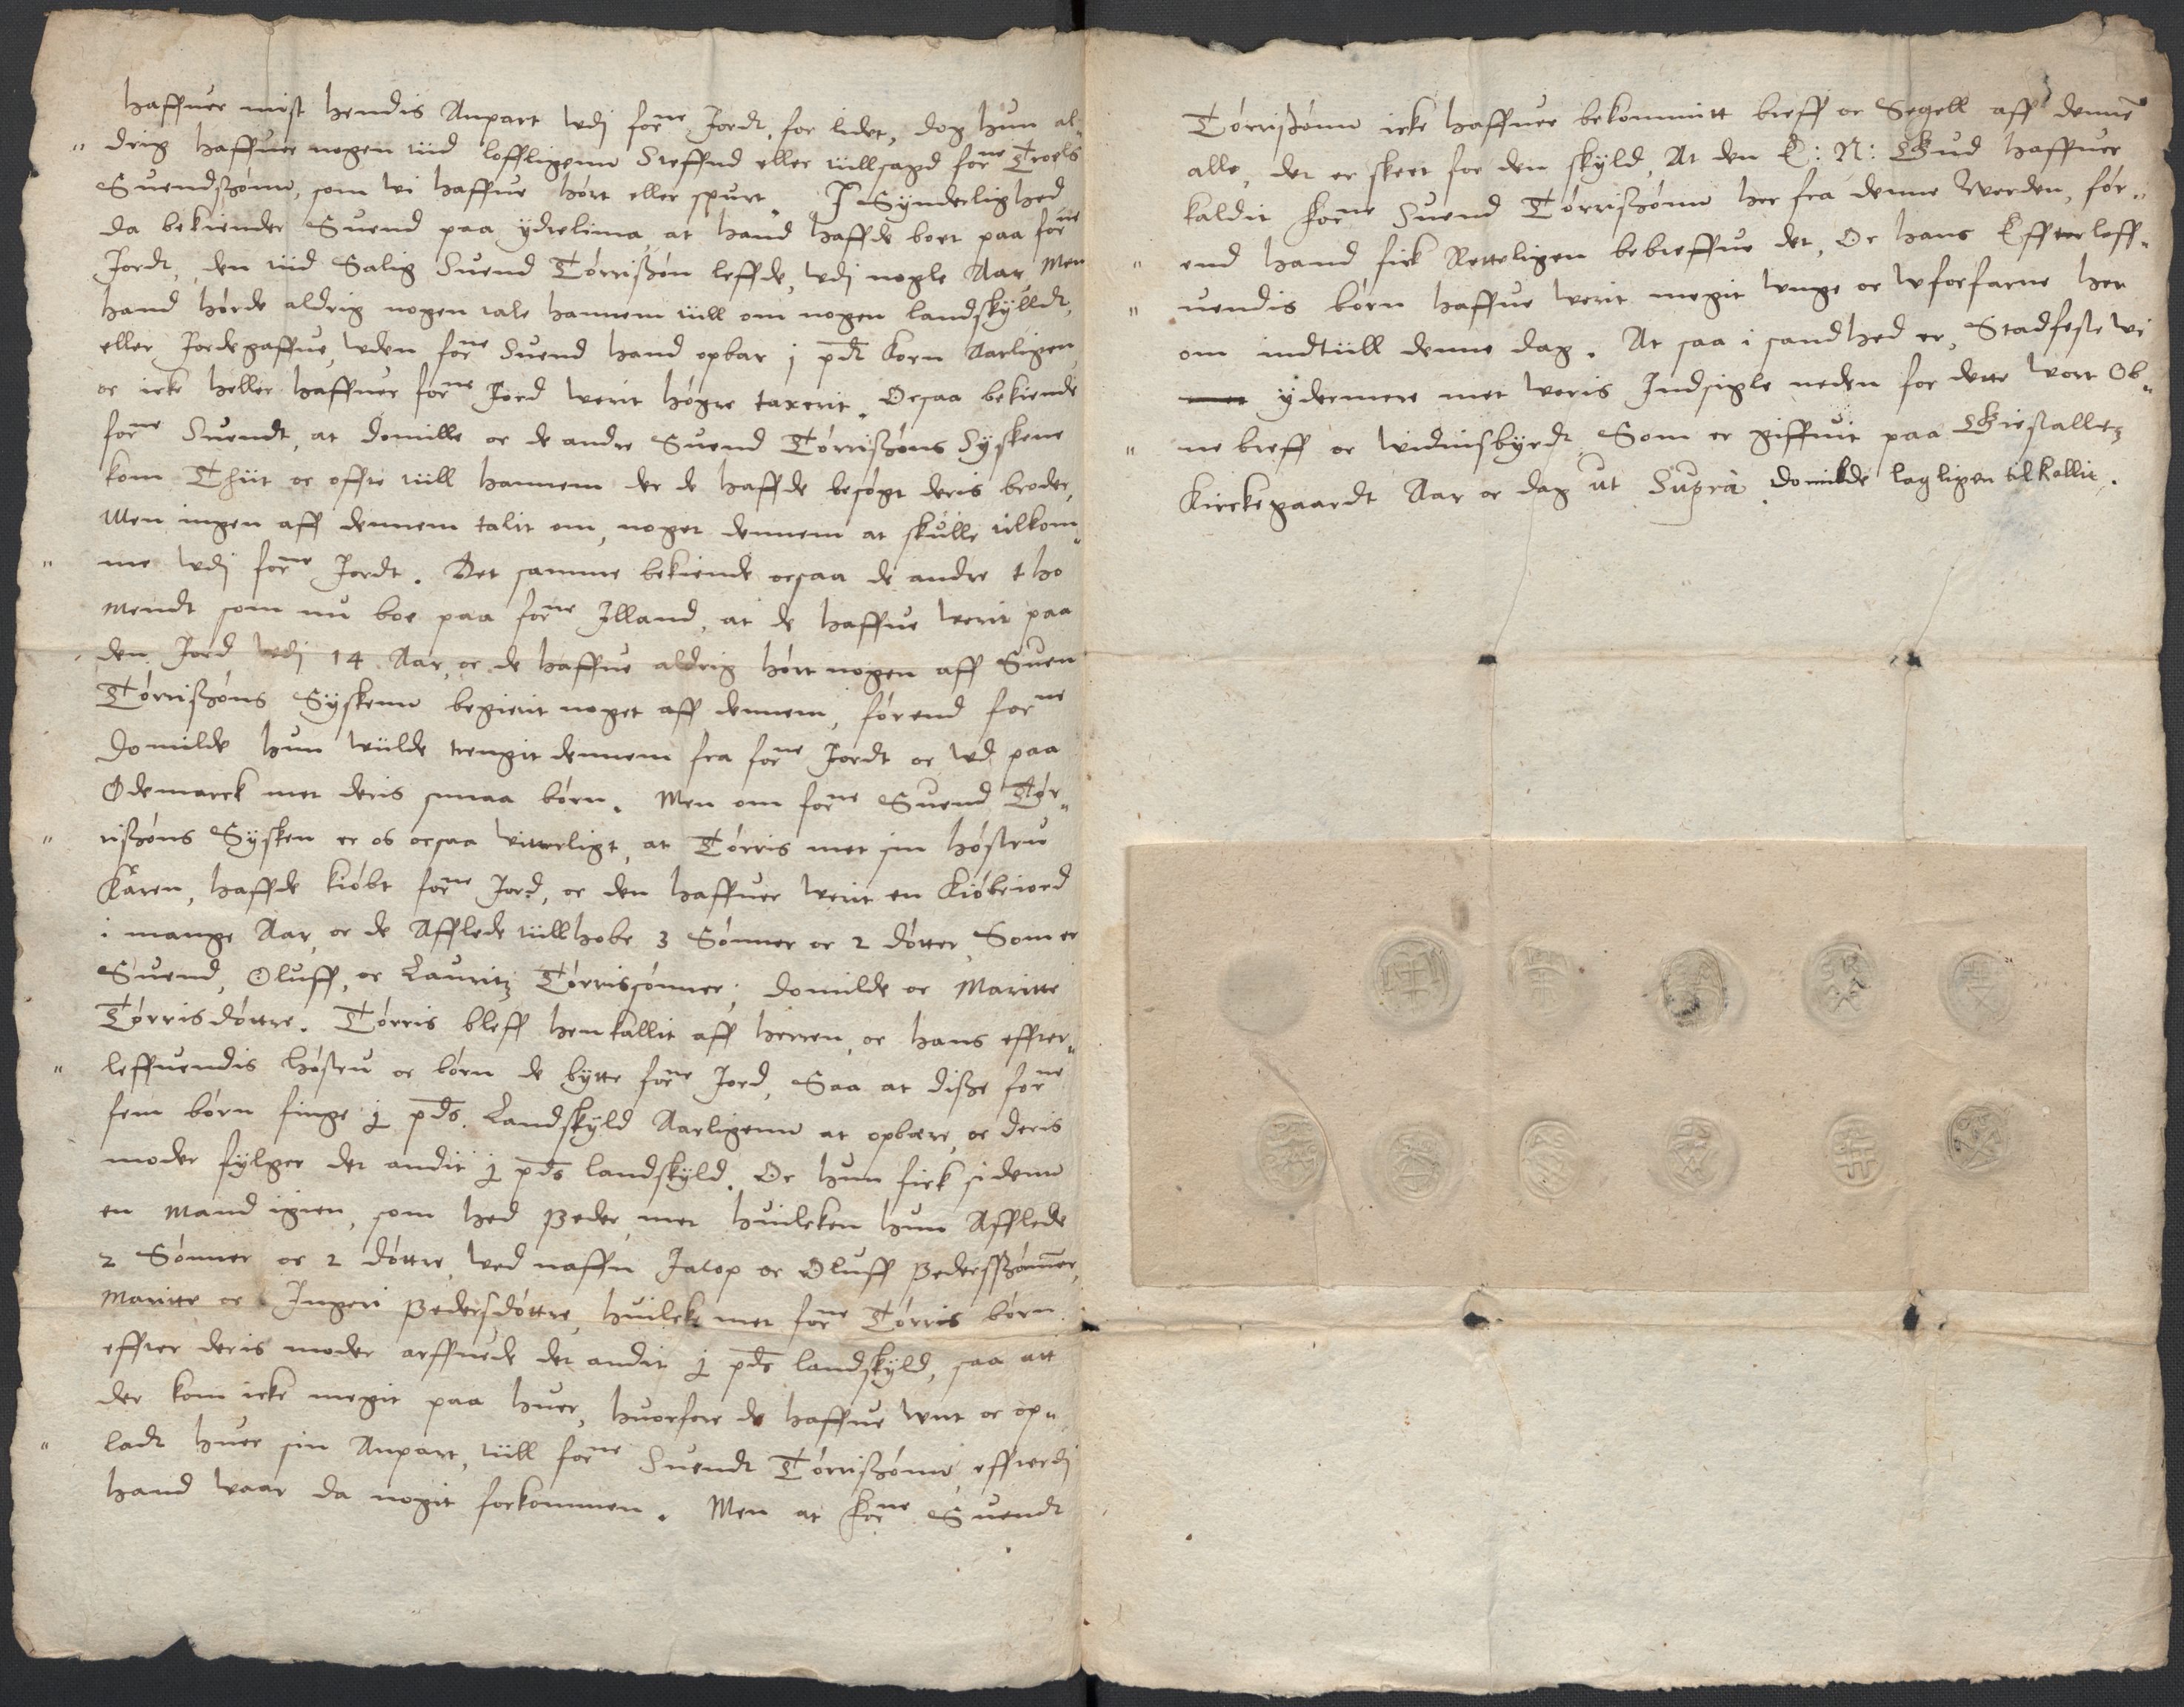 haffuer mist hendis Anpart wdj forne Jordt, for lidet, dog hun al„
„ drig haffuer nogen tiid loffligenn Steffnd eller tiillsagd forne Troels
Suendszønn, som wi haffue hørt eller spurt. I Synderlighed
da bekiender Suend paa ydrelima, at hand haffde boet paa forne
Jordt, den tiid Salig Suend Tørriszøn leffde, wdj nogle Aar, Men
hand hørde aldrig nogen tale hannem tiill om nogen landskylldt,
eller Jordegaffue, wden forne Suend hand opbar j pdt Korn Aarligen
oc icke heller haffuer forne Jord werit høgre taxerit. Ocsaa bekiende
forne Suendt, at Domille oc de andre Suend Tørriszøns Syskene
kom Thiit oc offte tiill hannem der de haffde besøgt deris broder,
Men ingen aff dennem talit om, noget dennem at skulle tilkom„
„ me wdj forne Jordt. Det samme bekiende ocsaa de andre tho
Mendt som nu boe paa forne Jlland, at de haffue werit paa
den Jord wdj 14 Aar, oc de haffue aldrig hørt nogen aff Suen
Tørriszøns Syskenn begierit noget aff dennem, førend forne
Domilde hun wiilde trengit dennem fra forne Jordt oc wd paa
Ødemarck met deris smaa børn. Men om forne Suend Tør„
„ riszøns Sysken er os ocsaa witterligt, at Tørris met sin høstru
Karen, haffde kiøbt forne Jord, oc den haffuer werit en Kiøbeiord
i mange Aar, oc de Afflede tiillhobe 3 Sønner oc 2 døtter, Som er
Suend, Oluff, oc Lauritz Tørrissønner; Domilde oc Maritte
Tørrisdøttre. Tørris bleff henkallit aff herren, oc hans effter„
„ leffuendis høstru oc børn de bytte forne Jord, Saa at disze forne
fem børn finge j pds. Landskyld Aarligenn at opbære, oc deris
moder fylger det andit j pds landskyld. Oc hun fick sidenn
en Mand igien, som hed Peder, met huilcken hun Afflede
2 Sønner oc 2 døttre, wed naffn Jacop oc Oluff Pederszønner,
Maritte oc Ingeri Pedersdøttre, huilcke met forne Tørris børn
effter deris moder arffuede det andit j pds landskyld, saa att
der kom icke megit paa huer, huorfore de haffue wnt oc op„
„ ladt huer sin Anpart, tiill forne Suendt Tørriszønn, effterdj
hand waar da nogit forkommen. Men at forne Suendt
Tørriszønn icke haffuer bekommitt breff oc Segell aff dennem
alle, det er skeet for den skyld, At den E: N: Gud haffuer
kaldit forne Suend Tørriszønn her fra denne Werden, før„
„ end hand fick Retteligen bebreffue det, Oc hans Effterleff„
„ uendis børn haffue werit megit wnge oc wforfarne her
om indtiill denne dag. At saa i sandhed er, Stadfeste wi
ydermere met woris Indsigle neden for dette wort Ob„
„ ne breff oc widnisbyrdt, Som er giffuit paa Giestallz
Kirckegaardt Aar oc dag ut Supra. Domilde lagligen tilkallit.